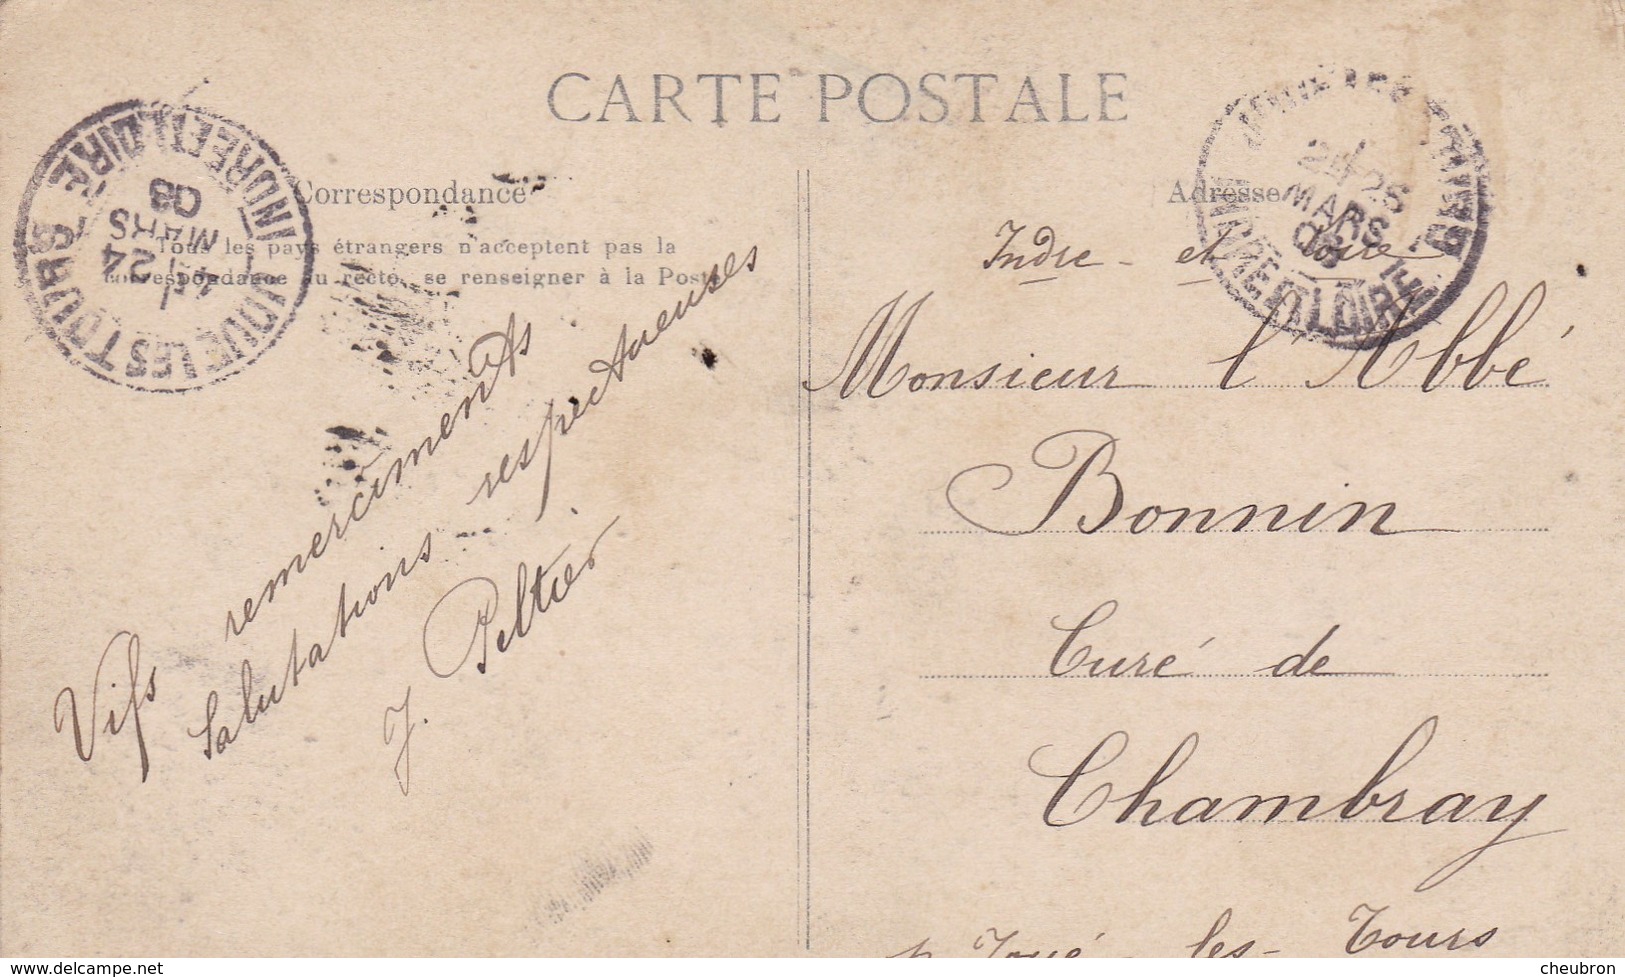 CARTE POSTALE
Correspondance
Tous les pays étrangers n'acceptent pas la
correspondance au recto, se renseigner à la Poste
Vifs remerciments
Salutations respectueuses
J. Peltier
Adresse
Indre - et Loire
Monsieur l'Abbé
Bonnin
Curé de
Chambray
p. Joué-les-Tours
JOUE LES TOURS
INDRE ET LOIRE
24
MARS
08
25
MARS
08
INDRE ET LOIRE
https://www.delcampe.net
cheubron